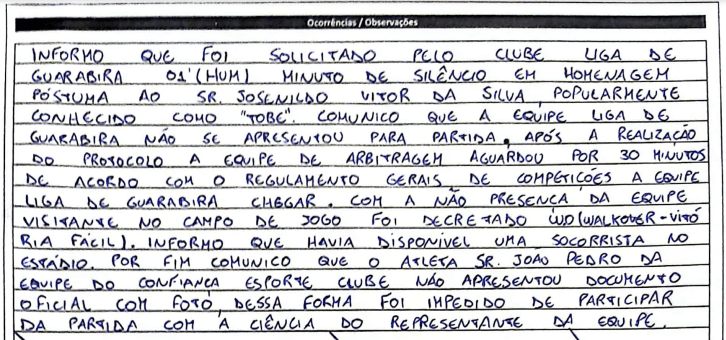 Ocorrências / Observações
INFORMO QUE FOI SOLICITADO PELO CLUBE LIGA DE
GUARABIRA 01'(HUM) MINUTO DE SILÊNCIO EM HOMENAGEM
PÓSTUMA AO SR. JOSENILDO VITOR DA SILVA, POPULARMENTE
CONHECIDO COMO "TOBE". COMUNICO QUE A EQUIPE LIGA DE
GUARABIRA NÃO SE APRESENTOU PARA PARTIDA, APÓS A REALIZAÇÃO
DO PROTOCOLO A EQUIPE DE ARBITRAGEM AGUARDOU POR 30 MINUTOS
DE ACORDO COM O REGULAMENTO GERAIS DE COMPETIÇÕES A EQUIPE
LIGA DE GUARABIRA CHEGAR. COM A NÃO PRESENÇA DA EQUIPE
VISITANTE NO CAMPO DE JOGO FOI DECRETADO WO (WALKOVER-VITÓ
RIA FÁCIL). INFORMO QUE HAVIA DISPONÍVEL UMA SOCORRISTA NO
ESTÁDIO. POR FIM COMUNICO QUE O ATLETA SR. JOÃO PEDRO DA
EQUIPE DO CONFIANÇA ESPORTE CLUBE NÃO APRESENTOU DOCUMENTO
OFICIAL COM FOTO, DESSA FORMA FOI IMPEDIDO DE PARTICIPAR
DA PARTIDA COM A CIÊNCIA DO REPRESENTANTE DA EQUIPE.